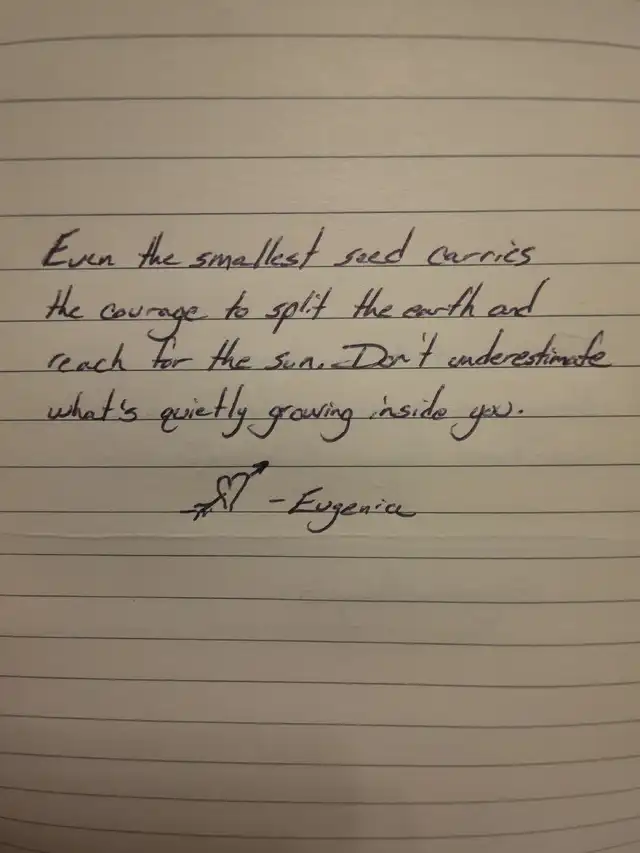 Even the smallest seed carries
the courage to split the earth and
reach for the sun. Don't underestimate
what's quietly growing inside you.
- Eugenia